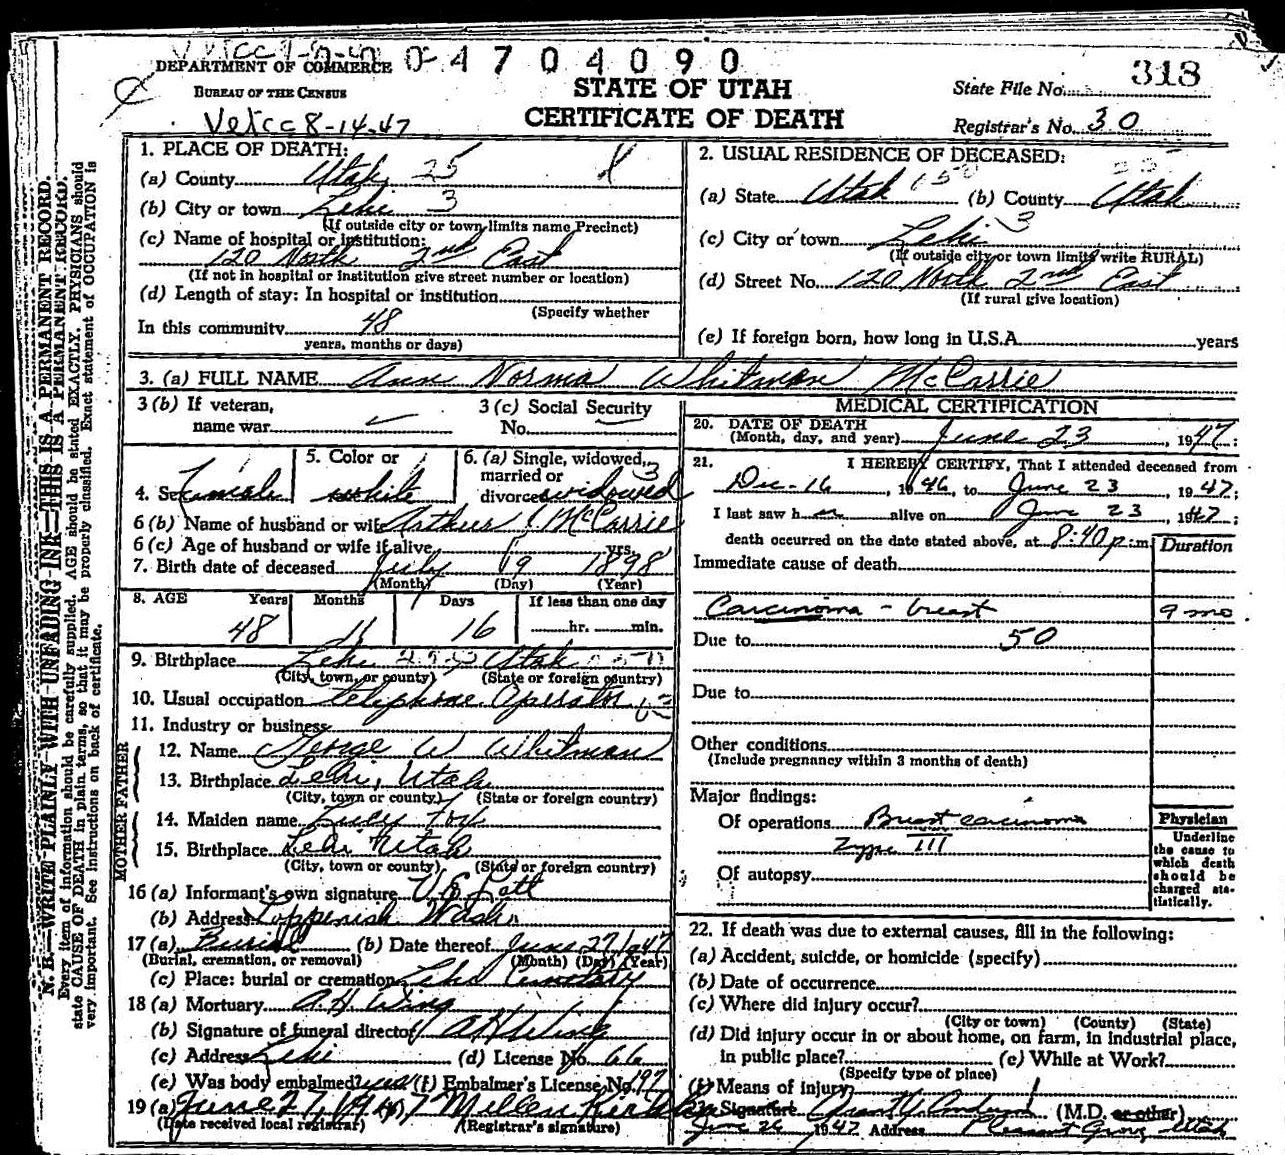 Vetcc
0 4 7 0 4 0 9 0
DEPARTMENT OF COMMERCE
BUREAU OF THE CENSUS
Vetcc 8-14-47
STATE OF UTAH
CERTIFICATE OF DEATH
318
State File No.
Registrar's No. 30
N. B.—WRITE PLAINLY WITH UNFADING INK—THIS IS A PERMANENT RECORD.
Every item of information should be carefully supplied. AGE should be stated EXACTLY. PHYSICIANS should
state CAUSE OF DEATH in plain terms, so that it may be properly classified. Exact statement of OCCUPATION is
very important. See instructions on back of certificate.
1. PLACE OF DEATH:
(a) County Utah 25
(b) City or town Lehi 3
(If outside city or town limits name Precinct)
(c) Name of hospital or institution:
120 North 2nd East
(If not in hospital or institution give street number or location)
(d) Length of stay: In hospital or institution
(Specify whether
In this community 48
years, months or days)
2. USUAL RESIDENCE OF DECEASED:
(a) State Utah (b) County Utah
(c) City or town Lehi 3
(If outside city or town limits write RURAL)
(d) Street No. 120 North 2nd East
(If rural give location)
(e) If foreign born, how long in U.S.A. years
3. (a) FULL NAME Ann Norma Whitman McCarrie
3 (b) If veteran,
name war
3 (c) Social Security
No.
4. Sex Female
5. Color or
white
6. (a) Single, widowed, 3
married or
divorced widowed
6 (b) Name of husband or wife Arthur McCarrie
6 (c) Age of husband or wife if alive yrs.
7. Birth date of deceased July 9 1898
(Month) (Day) (Year)
8. AGE Years Months Days If less than one day
48 11 16 hr. min.
9. Birthplace Lehi Utah
(City, town, or county) (State or foreign country)
10. Usual occupation Telephone Operator
11. Industry or business
FATHER
12. Name George W Whitman
13. Birthplace Lehi, Utah
(City, town or county) (State or foreign country)
MOTHER
14. Maiden name Lucy Fox
15. Birthplace Lehi Utah
(City, town or county) (State or foreign country)
16 (a) Informant's own signature
(b) Address Toppenish Wash.
17 (a) Burial (b) Date thereof June 27 1947
(Burial, cremation, or removal) (Month) (Day) (Year)
(c) Place: burial or cremation Lehi Cemetery
18 (a) Mortuary A. H. Wing
(b) Signature of funeral director A H Wing
(c) Address Lehi (d) License No. 66
(e) Was body embalmed? yes (f) Embalmer's License No. 197
19 (a) June 27, 1947
(Date received local registrar) (Registrar's signature)
MEDICAL CERTIFICATION
20. DATE OF DEATH
(Month, day, and year) June 23, 1947;
21. I HEREBY CERTIFY, That I attended deceased from
Dec-16, 1946, to June 23, 1947;
I last saw her alive on June 23, 1947;
death occurred on the date stated above, at 8:40 p. m.
Duration
Immediate cause of death
Carcinoma - breast 9 mo
Due to 50
Due to
Other conditions
(Include pregnancy within 3 months of death)
Major findings:
Of operations Breast carcinoma
Type III
Of autopsy
Physician
Underline
the cause to
which death
should be
charged sta-
tistically.
22. If death was due to external causes, fill in the following:
(a) Accident, suicide, or homicide (specify)
(b) Date of occurrence
(c) Where did injury occur?
(City or town) (County) (State)
(d) Did injury occur in or about home, on farm, in industrial place,
in public place? (e) While at Work?
(Specify type of place)
(f) Means of injury
23. Signature (M.D. or other)
June 26 1947 Address Pleasant Grove Utah